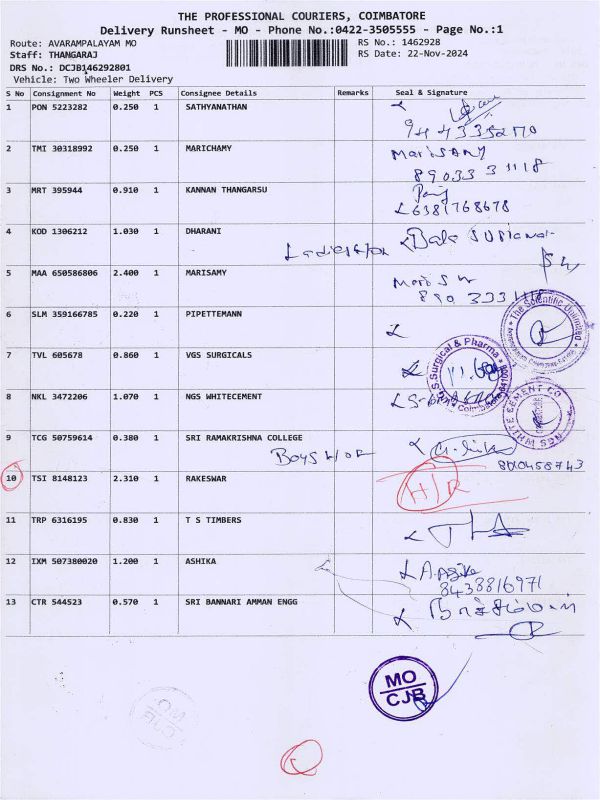 THE PROFESSIONAL COURIERS, COIMBATORE
Delivery Runsheet - MO - Phone No.:0422-3505555 - Page No.:1
Route: AVARAMPALAYAM MO
RS No.: 1462928
Staff: THANGARAJ
RS Date: 22-Nov-2024
DRS No.: DCJB146292801
Vehicle: Two Wheeler Delivery
S No Consignment No Weight PCS Consignee Details Remarks Seal & Signature
1 PON 5223282 0.250 1 SATHYANATHAN
2 TMI 30318992 0.250 1 MARICHAMY
89033 31118
3 MRT 395944 0.910 1 KANNAN THANGARSU
6381768678
4 KOD 1306212 1.030 1 DHARANI
5 MAA 650586806 2.400 1 MARISAMY
6 SLM 359166785 0.220 1 PIPETTEMANN
The Scientific Unlimited
7 TVL 605678 0.860 1 VGS SURGICALS
S Surgical & Pharma
8 NKL 3472206 1.070 1 NGS WHITECEMENT
9 TCG 50759614 0.380 1 SRI RAMAKRISHNA COLLEGE
BOYS
10 TSI 8148123 2.310 1 RAKESWAR
H/R
11 TRP 6316195 0.830 1 T S TIMBERS
12 IXM 507380020 1.200 1 ASHIKA
8438816971
13 CTR 544523 0.570 1 SRI BANNARI AMMAN ENGG
MO
CJB